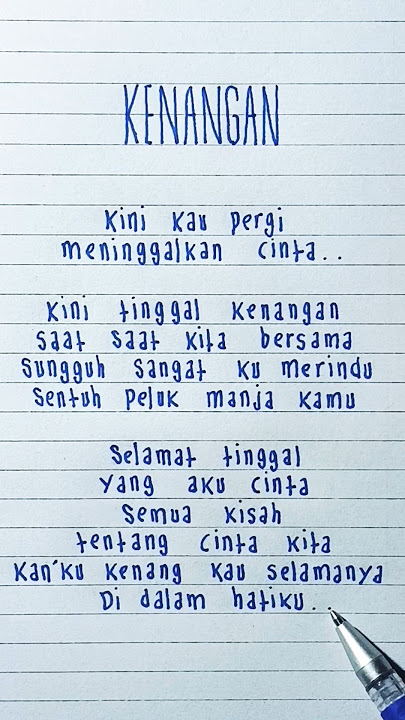 KENANGAN
Kini kau pergi
meninggalkan cinta..
Kini tinggal kenangan
saat saat kita bersama
Sungguh sangat ku merindu
Sentuh peluk manja kamu
Selamat tinggal
yang aku cinta
Semua kisah
tentang cinta kita
Kan'ku kenang kau selamanya
Di dalam hatiku..